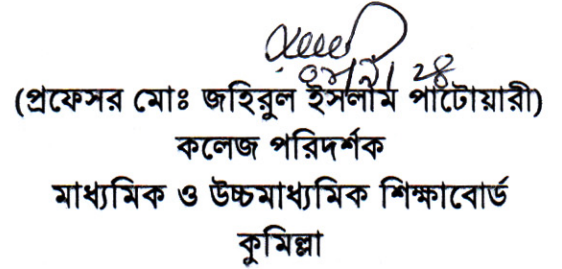 (প্রফেসর মোঃ জহিরুল ইসলাম পাটোয়ারী)
কলেজ পরিদর্শক
মাধ্যমিক ও উচ্চমাধ্যমিক শিক্ষাবোর্ড
কুমিল্লা